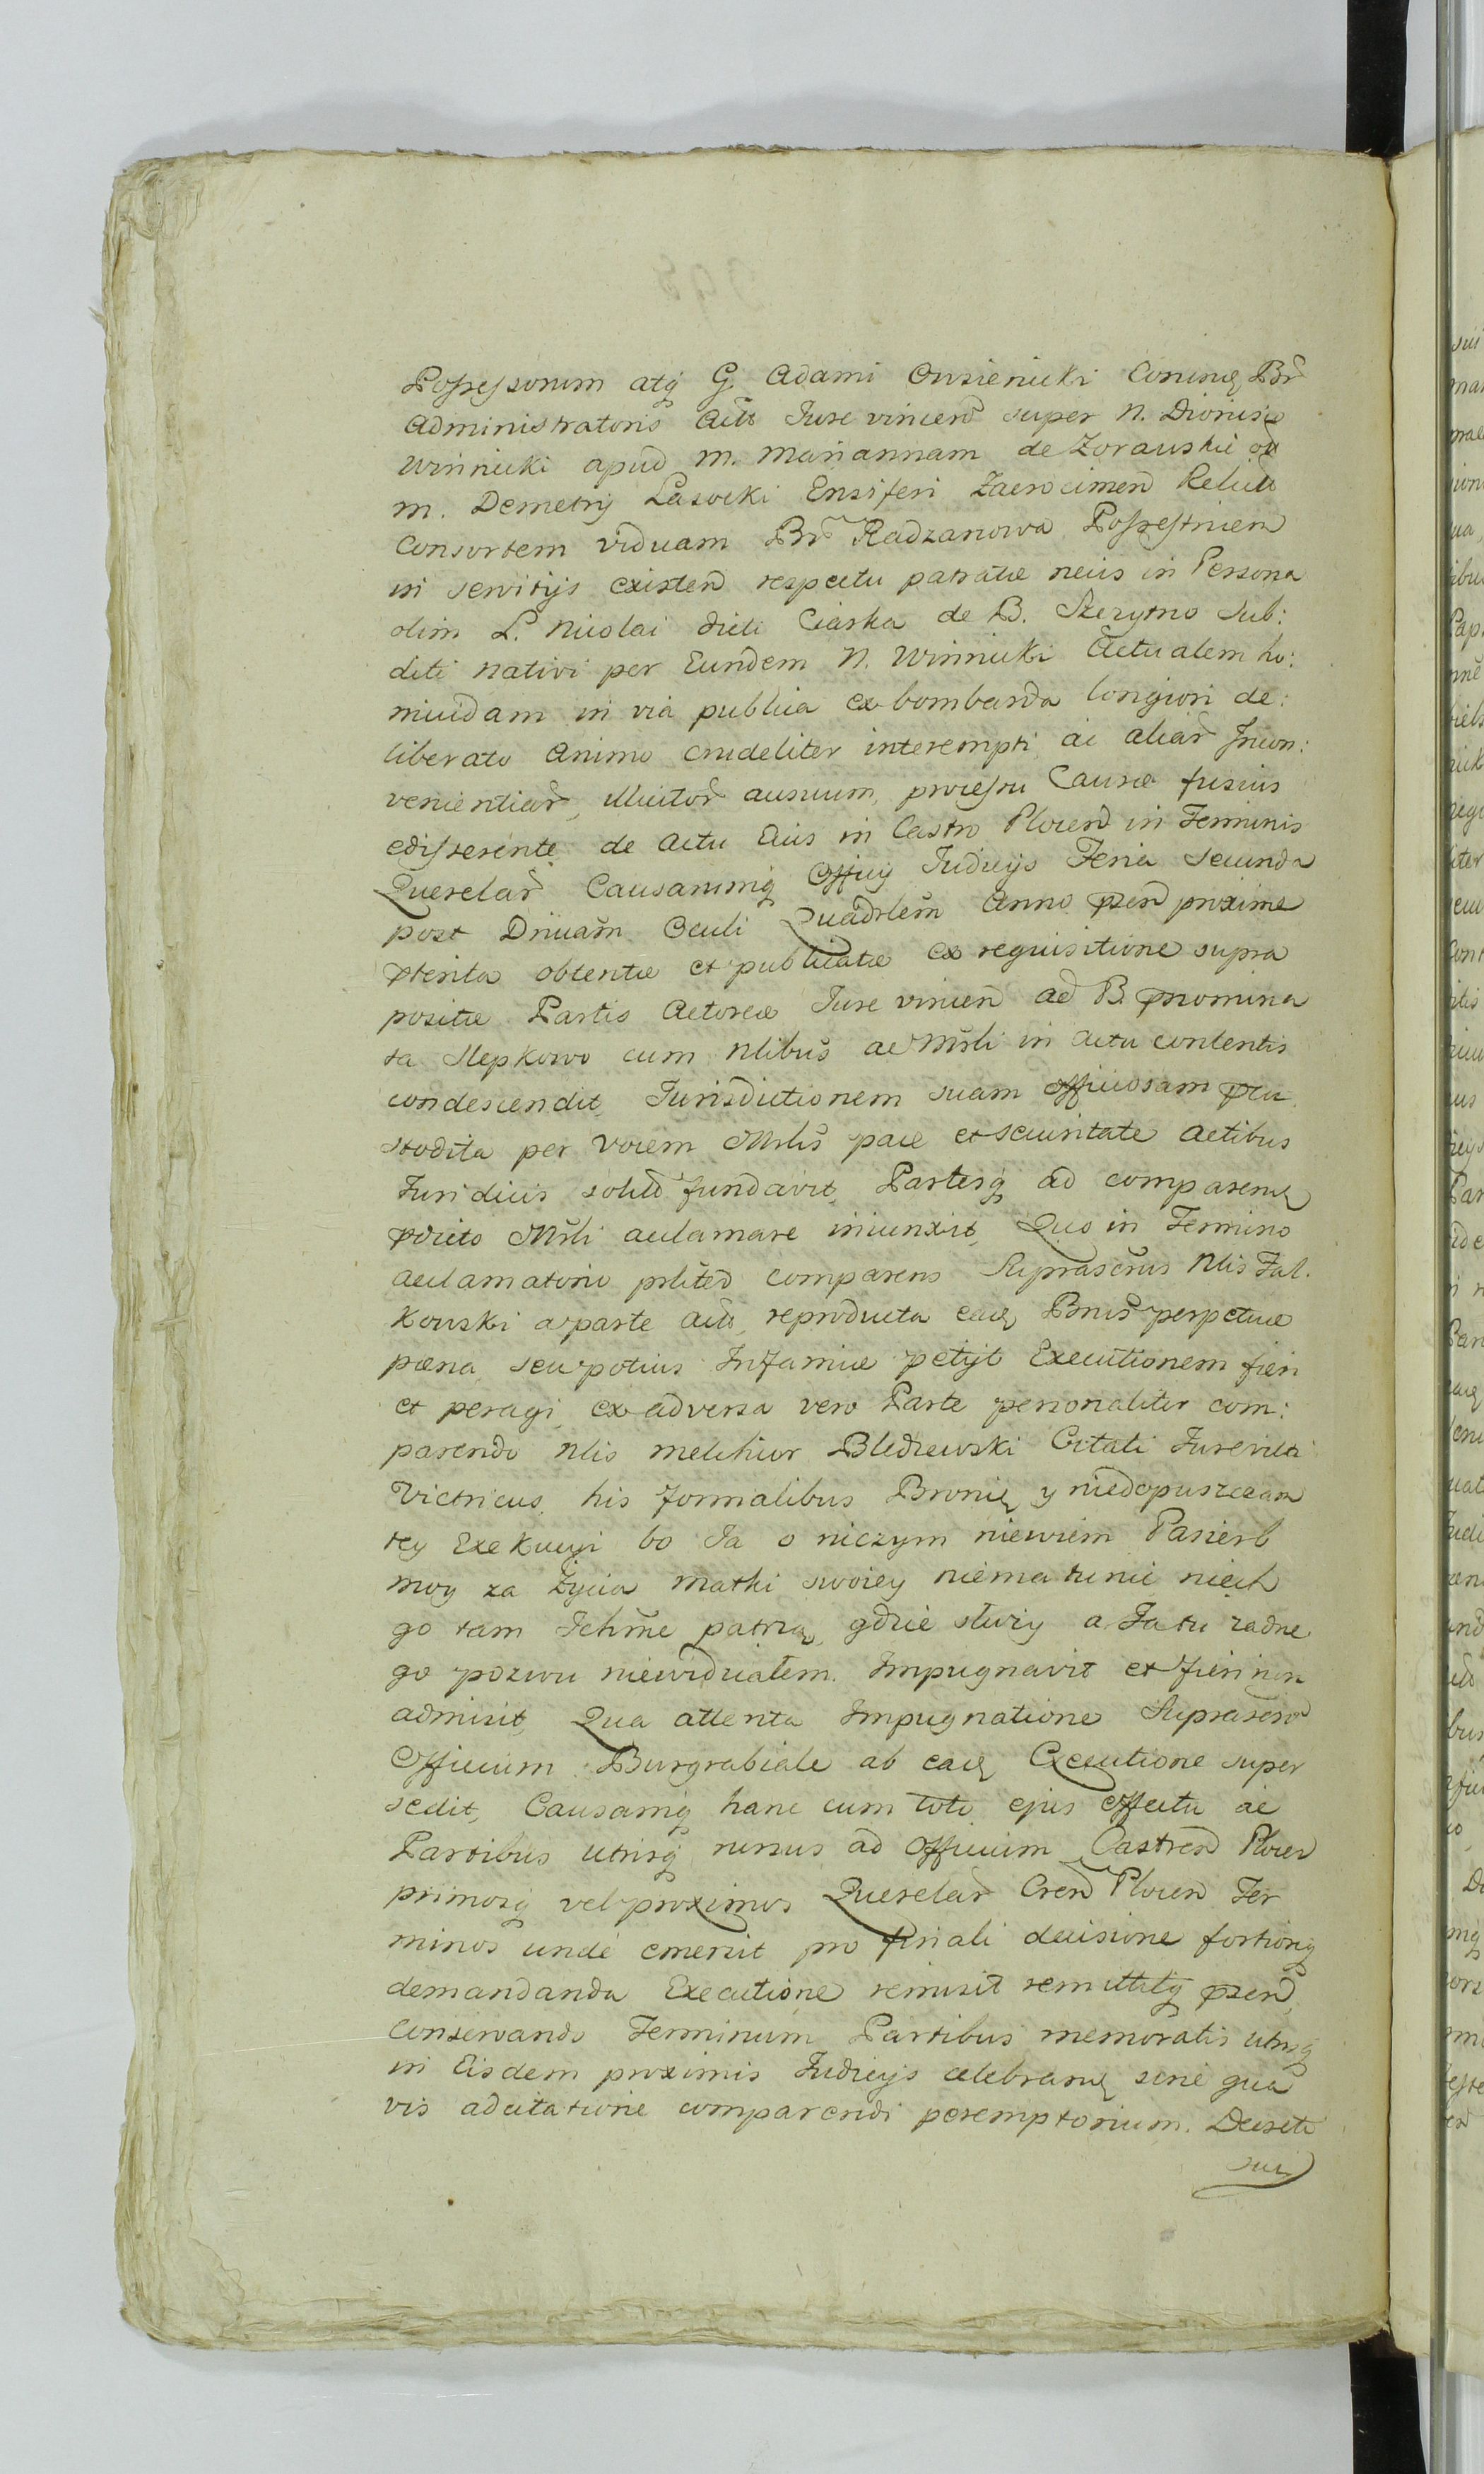 Possessorum atq̃ G. Adami Owsienicki eorundẽ Br̃
Administratoris Actt̃ Jure vincen̄ super N. Dionisio
Winnicki apud M. Mariannam de Zorawskie od
M. Demetrij Lasocki Ensiferi Zacrocimen̄ Relictt̃
Consortem viduam Br̃ Radzanowa Possestricem
in servitijs existen̄ respectu patratæ necis in Persona
olim L. Nicolai dicti Ciaska de B. Szczytno Sub:
diti nativi per Eundem N. Winnicki Actualem ho:
micidam in via publica ex bombarda longiori de:
liberato animo crudeliter interempti, ac aliar̃ Incon:
venientiar̃, illicitor̃ ausuum, processu Causæ fusius
edisserente de actu Eius in Castro Plocen̄ in Terminis
Querelar̃ Causarumq̃ Officij Judicijs Feria Secunda
post Dnicam̃ Oculi Quadrlem̃ Anno p̃sen̄ proxime
p̃terita obtentæ et publicatæ ex requisitione supra
positæ Partis Actoreæ Jure vincen̄ ad B. p̃nomina
ta Slepkowo cum Nlibus̃ ac Mr̃li in actu contentis
condescendit, Jurisdictionem suam officiosam p̃cu
stodita per vocem Mrlis̃ pace et securitate actibus
Juridicis solitt̃ fundavit, Partesq̃ ad comparenḑ
p̃dicto Mrl̃i acclamare iniunxit, Quo in Termino
acclamatorio prlĩter comparens Suprascrus̃ Nlis Fal.
kowski a parte actt̃, reproducta eaḑ Bnis̃ perpetuæ
pæna, seu potius Infamiæ petijt Executionem fieri
et peragi, ex adversa vero Parte personaliter com:
parendo Nlis Melchior Bledzewski Citati Jurevicti
Victricus, his formalibus Bronię y niedopuszczam
tey Exekucyi bo Ja o niczym niewiem Pasierb
moy za Zycia Matki swoiey niema tu nic niech
go tam Ichm̃e patrzą, gdzie słuzy a Ja tu zadne
go pozwu niewidziałem. Impugnavit et fieri non
admisit, Qua attenta Impugnatione Suprascrr̃
Officium Burgrabiale ab eaḑ Executione super
sedit, Causamq̃ hanc cum toto ejus effectu ac
Partibus utrisq̃ rursus ad Officium Castren̄ Plocen̄
primosq̃ vel proximos Querelar̃ Cren̄ Plocen̄ Ter
minos unde emersit pro finali decisione fortiorq̃
demandanda Executione remisit remittitq̃ p̃sen̄
conservando Terminum Partibus memoratis utrisq̃
in Eisdem proximis Judicijs celebranḑ sine qua
vis adcitatione comparendi peremptorium. Decreti
sui